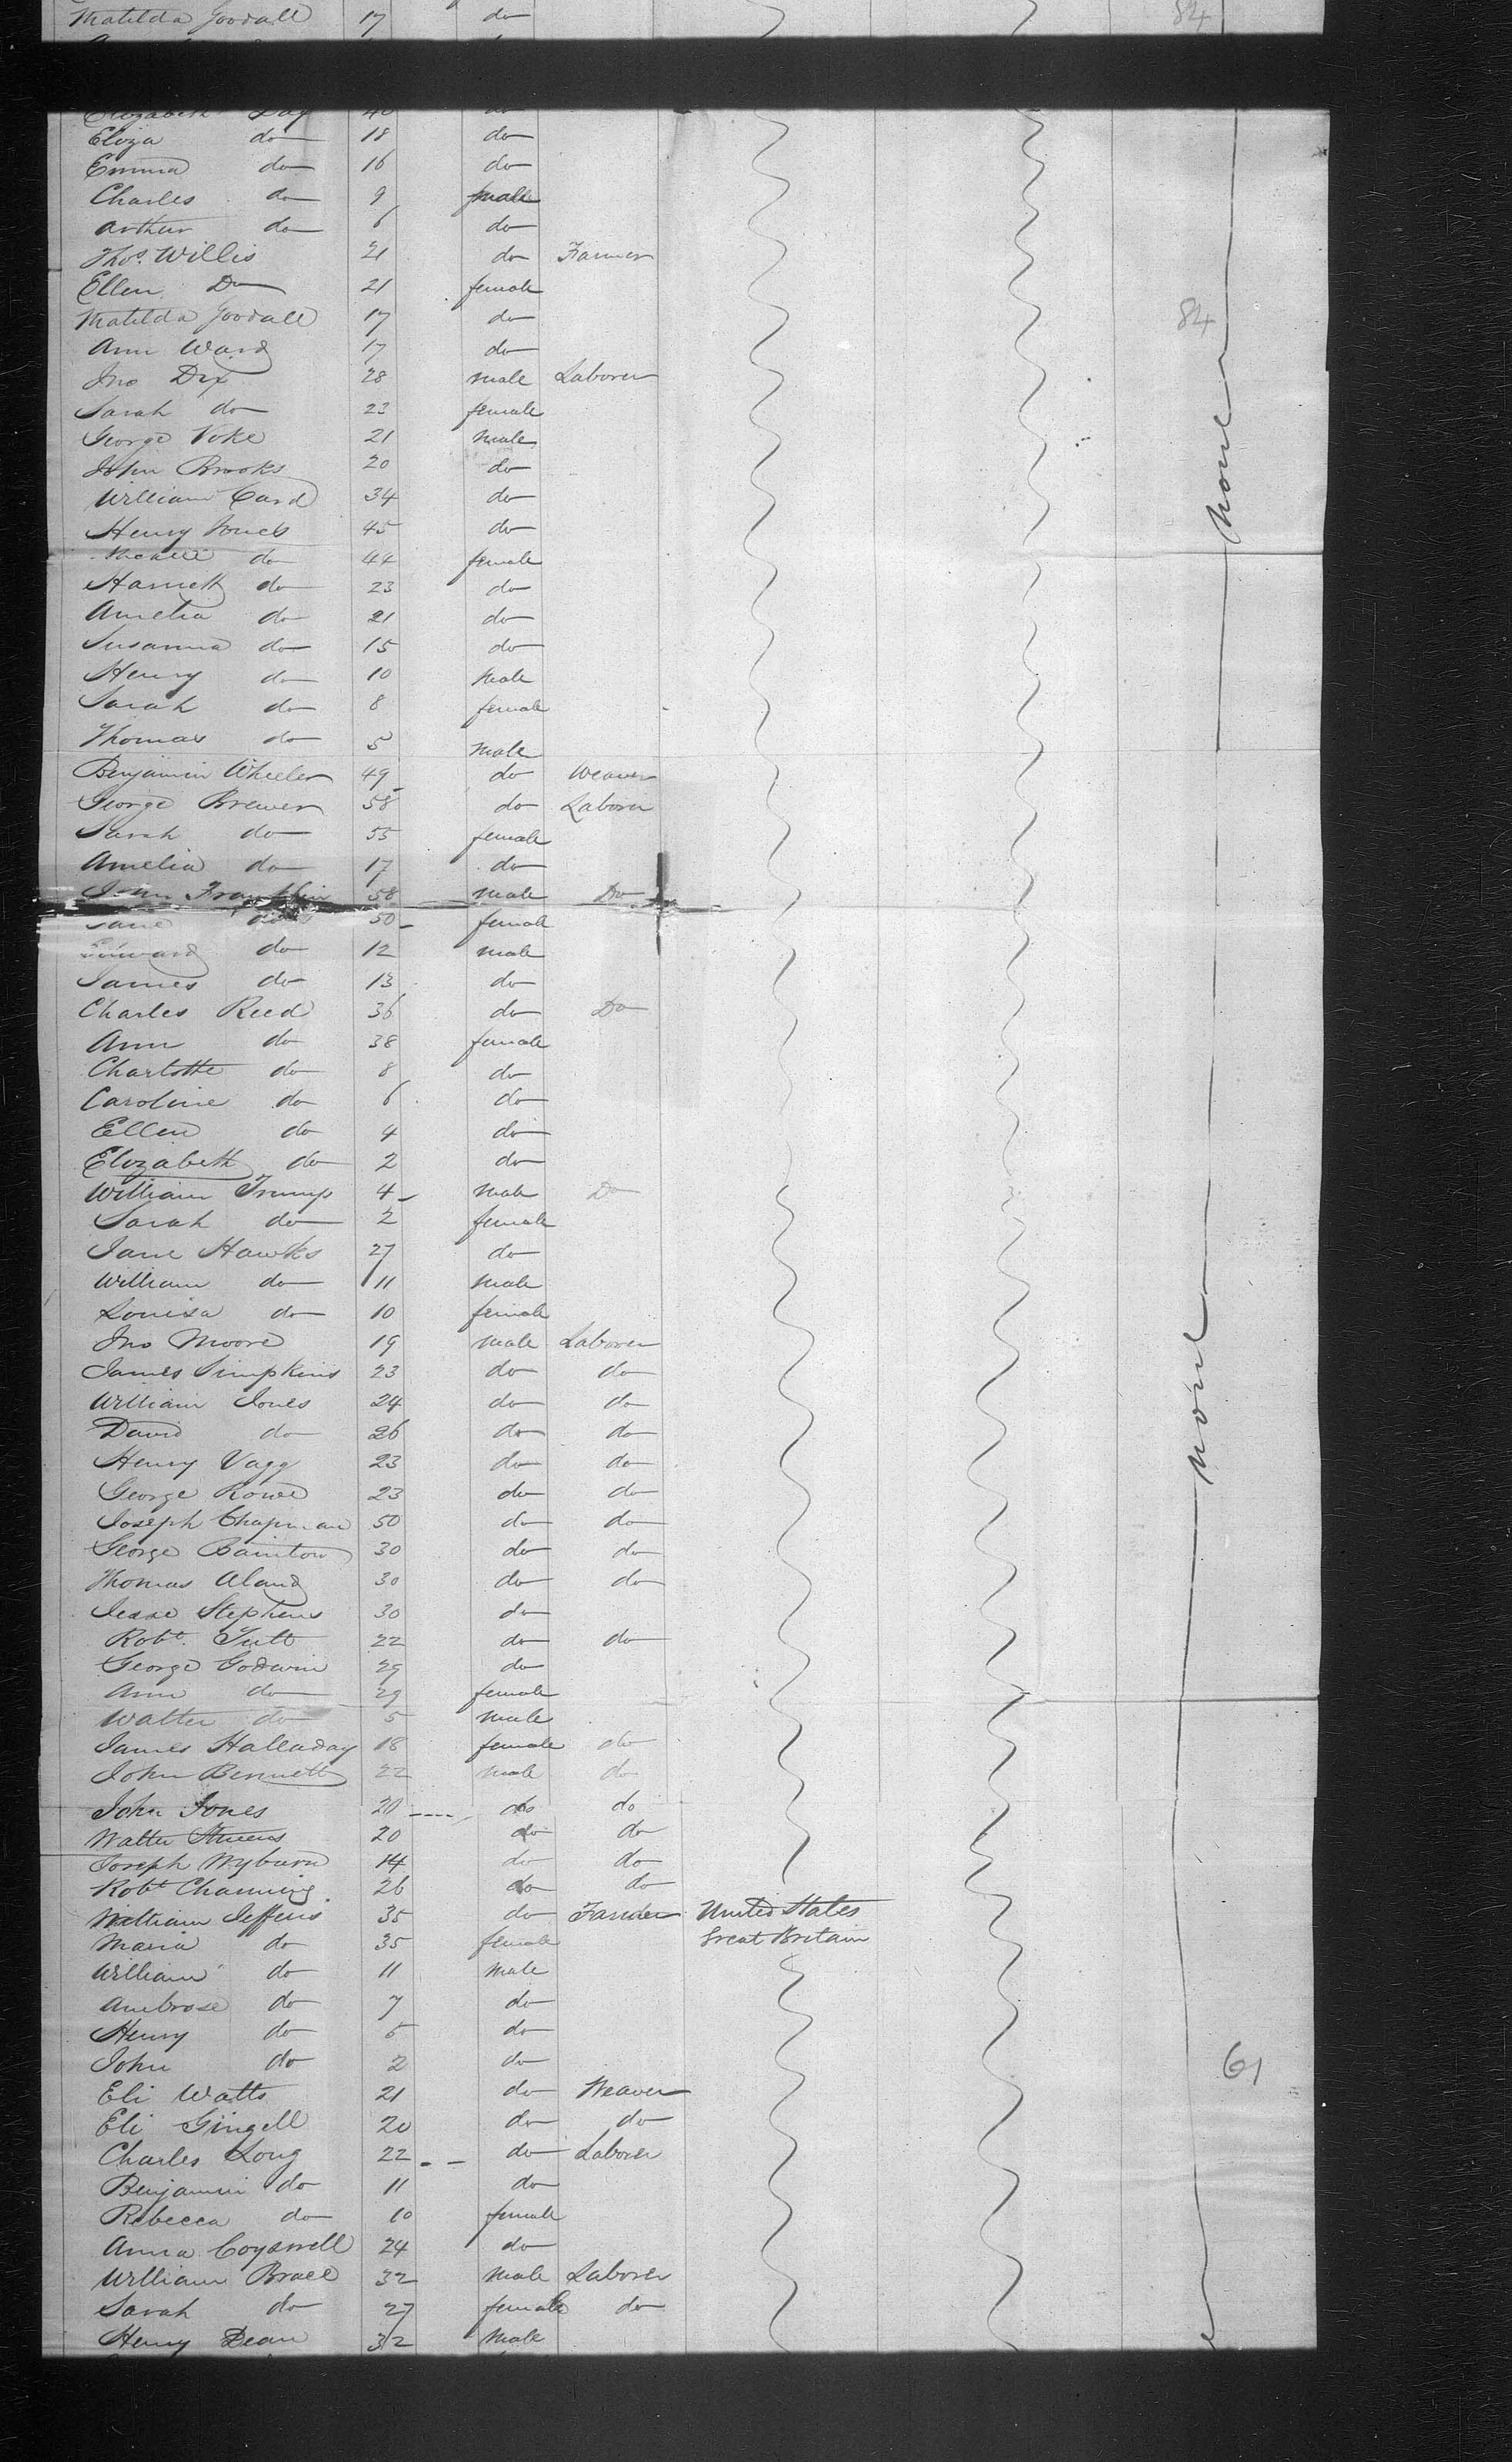 Matilda Goodall 17 do 84
Elizabeth Day 40 do
Eliza do 18 do
Emma do 16 do
Charles do 9 male
Arthur do 6 do
Thos. Willis 21 do Farmer
Ellen Do 21 female
Matilda Goodall 17 do 84
Ann Ward 17 do
Jno Dix 28 male Laborer
Sarah do 23 female
George Voke 21 male
John Brooks 20 do
William Card 34 do none
Henry Jones 45 do
do 44 female
Harriett do 23 do
Amelia do 21 do
Susanna do 15 do
Henry do 10 male
Sarah do 8 female
Thomas do 5 male
Benjamin Wheeler 49 do Weaver
George Brewer 58 do Laborer
Sarah do 55 female
Amelia do 17 do
John Franklin 58 male Do
Jane do 50 female
Edward do 12 male
James do 13 do
Charles Reed 36 do Do
Ann do 38 female
Charlotte do 8 do
Caroline do 6 do
Ellen do 4 do
Elizabeth do 2 do
William Trump 4 male Do
Sarah do 2 female
Jane Hawks 27 do
William do 11 male
Louisa do 10 female
Jno Moore 19 male Laborer
James Simpkins 23 do do
William Jones 24 do do none
David do 26 do do
Henry Vagg 23 do do
George Rowe 23 do do
Joseph Chapman 50 do do
George Bainton 30 do do
Thomas Aland 30 do do
Jesse Stephens 30 do
Robt. Tutt 22 do do
George Godwin 29 do
Ann do 29 female
Walter do 5 male
James Halladay 18 female do
John Bennett 22 male do
John Jones 20 do do
Walter Stevens 20 do do
Joseph Wyburn 14 do do
Robt Channing 26 do do
William Jefferis 35 do Farmer United States
Maria do 35 female Great Britain
William do 11 male
Ambrose do 7 do
Henry do 5 do
John do 2 do 61
Eli Watts 21 do Weaver
Eli Gingell 20 do do
Charles Long 22 do Laborer
Benjamin do 11 do
Rebecca do 10 female
Anna Cogswell 24 do
William Brace 32 male Laborer
Sarah do 27 female do
Henry Dean 32 male